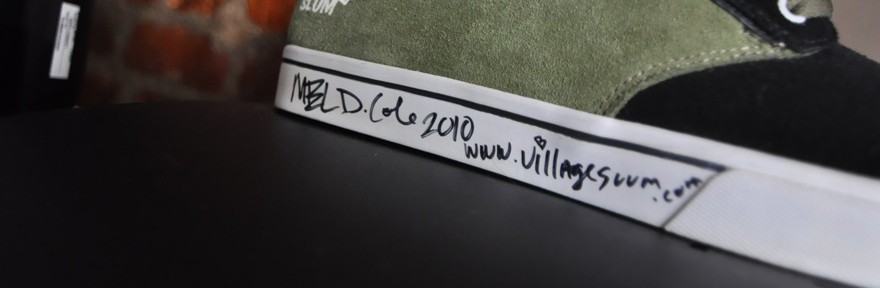 SLUM
MBLD.Cole 2010
www.villagesuum
.com